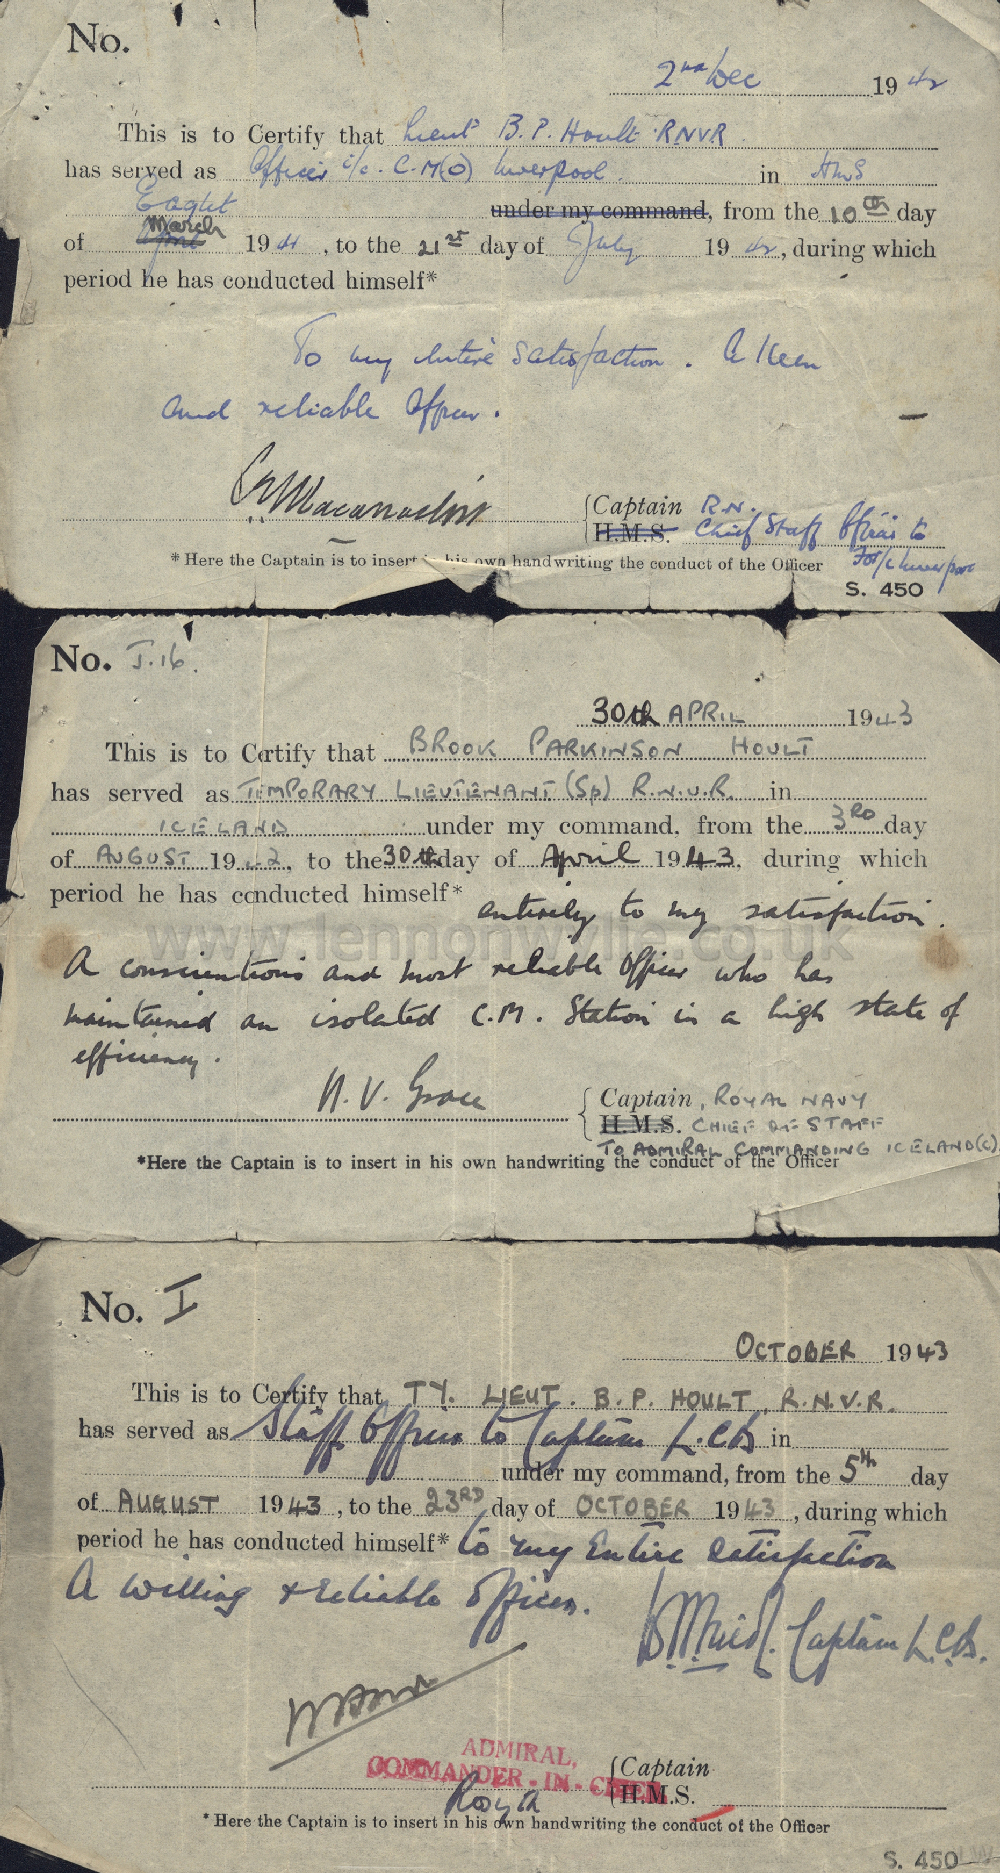 No.
2nd Dec 1942
This is to Certify that Lieut B. P. Hoult RNVR
has served as Officer i/c. C.M(O) Liverpool. in HMS
Eaglet under my command, from the 10th day
March
of April 1941, to the 21st day of July 1942, during which
period he has conducted himself*
To my entire satisfaction. A keen
and reliable officer.
Captain R.N.
H.M.S. Chief Staff Officer to
* Here the Captain is to insert in his own handwriting the conduct of the Officer
S. 450
No. I.16.
30th APRIL 1943
This is to Certify that BROOK PARKINSON HOULT
has served as TEMPORARY LIEUTENANT (Sp) R.N.V.R. in
ICELAND under my command, from the 3RD day
of AUGUST 1942, to the 30th day of April 1943, during which
period he has conducted himself* entirely to my satisfaction.
www.lennonwylie.co.uk
A conscientious and most reliable officer who has
maintained an isolated C.M. Station in a high state of
efficiency.
N. V. Grace Captain, ROYAL NAVY
H.M.S. CHIEF OF STAFF
TO ADMIRAL COMMANDING ICELAND(C)
*Here the Captain is to insert in his own handwriting the conduct of the Officer
No. I
OCTOBER 1943
This is to Certify that TY. LIEUT. B. P. HOULT, R.N.V.R.
has served as Staff Officer to Captain L.C.B in
under my command, from the 5th day
of AUGUST 1943, to the 23RD day of OCTOBER 1943, during which
period he has conducted himself* to my Entire Satisfaction
A willing & reliable officer.
Captain L.C.B.
ADMIRAL,
COMMANDER-IN-CHIEF
Captain
Rosyth H.M.S.
* Here the Captain is to insert in his own handwriting the conduct of the Officer
S. 450